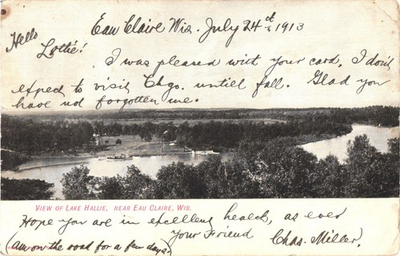 Eau Claire Wis. July 24th 1913
Hello
Lottie!
I was pleased with your card, I don't
expect to visit Chgo. untiell fall. Glad you
have not forgotten me.
VIEW OF LAKE HALLIE, NEAR EAU CLAIRE, WIS.
Hope you are in excellent health, as ever
Your Friend
Chas. Miller,
(Am on the road for a few days)